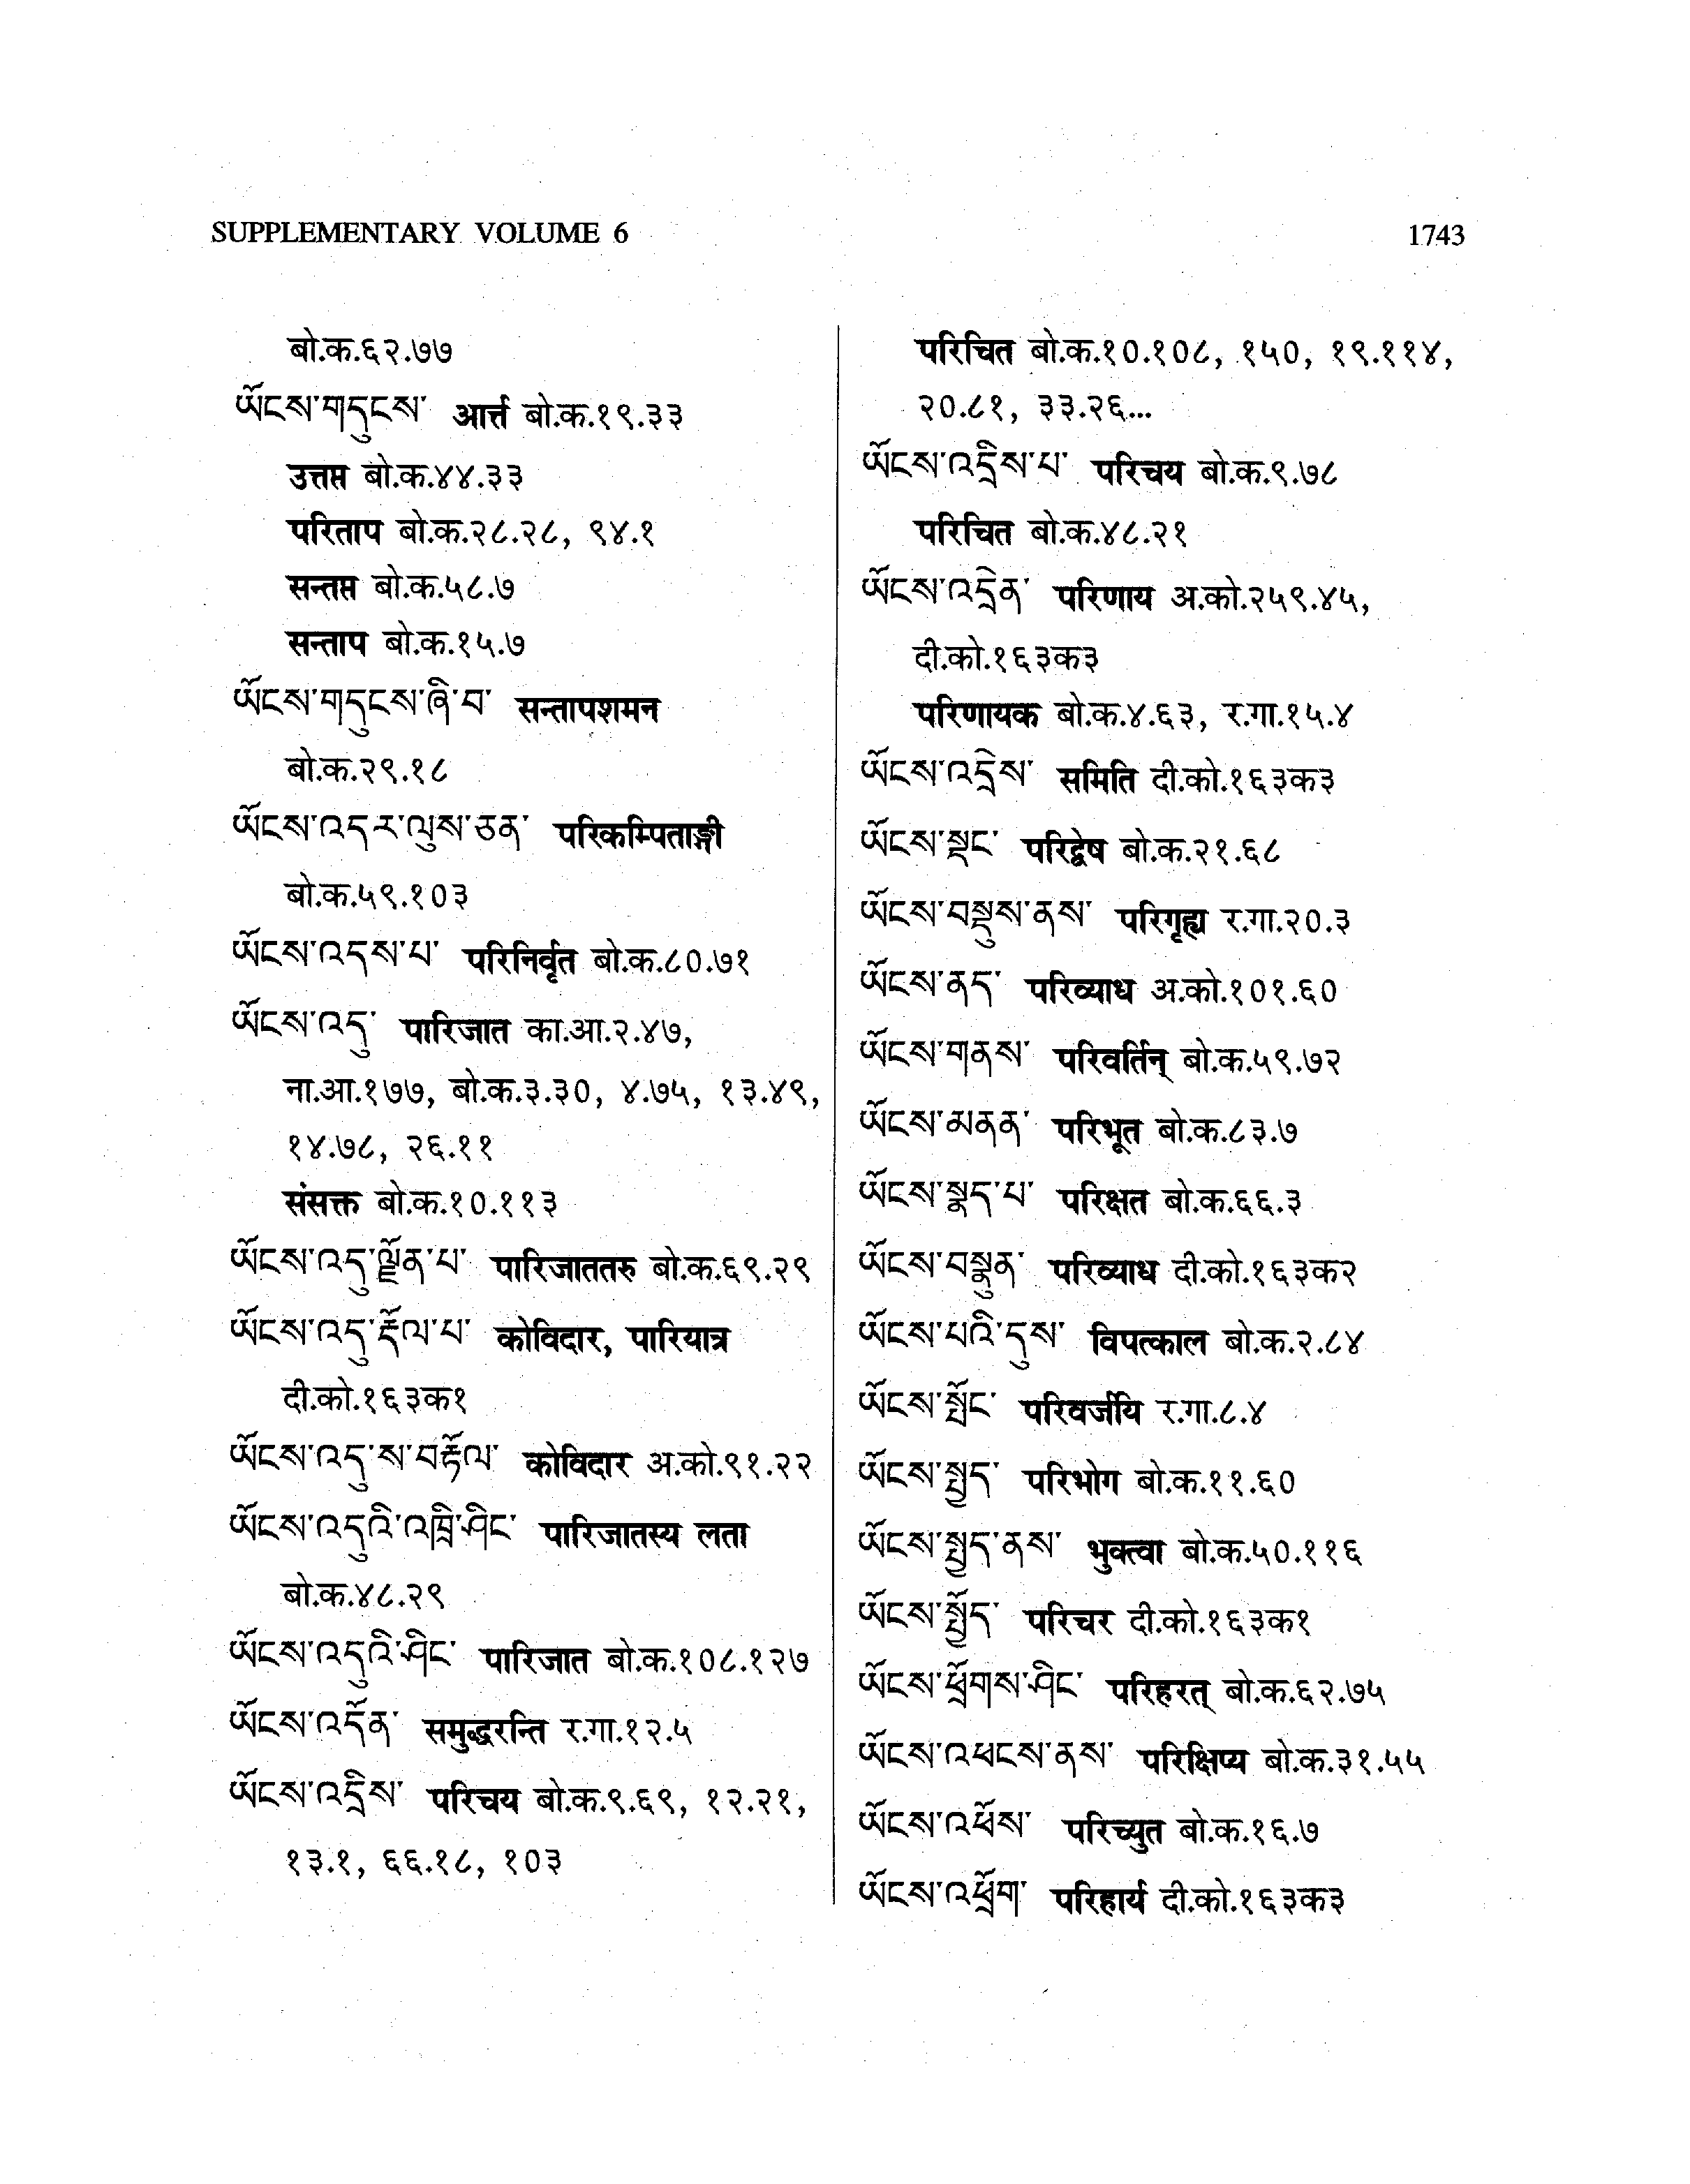 SUPPLEMENTARY VOLUME 6
1743
बो.क.६२.७७
ཡོངས་གདུངས་ आर्त्त बो.क.१९.३३
उत्तप्त बो.क.४४.३३
परिताप बो.क.२८.२८, ९४.१
सन्तप्त बो.क.५८.७
सन्ताप बो.क.१५.७
ཡོངས་གདུངས་ཞི་བ་ सन्तापशमन
बो.क.२९.१८
ཡོངས་འདར་ལུས་ཅན་ परिकम्पिताङ्गी
बो.क.५९.१०३
ཡོངས་འདས་པ་ परिनिर्वृत बो.क.८०.७१
ཡོངས་འདུ་ पारिजात का.आ.२.४७,
ना.आ.१७७, बो.क.३.३०, ४.७५, १३.४९,
१४.७८, २६.११
संसक्त बो.क.१०.११३
ཡོངས་འདུ་ལྗོན་པ་ पारिजाततरु बो.क.६९.२९
ཡོངས་འདུ་རྡོལ་པ་ कोविदार, पारियात्र
दी.को.१६३क१
ཡོངས་འདུ་ས་བརྟོལ་ कोविदार अ.को.९१.२२
ཡོངས་འདུའི་འཁྲི་ཤིང་ पारिजातस्य लता
बो.क.४८.२९
ཡོངས་འདུའི་ཤིང་ पारिजात बो.क.१०८.१२७
ཡོངས་འདོན་ समुद्धरन्ति र.गा.१२.५
ཡོངས་འདྲིས་ परिचय बो.क.९.६९, १२.२१,
१३.१, ६६.१८, १०३
परिचित बो.क.१०.१०८, १५०, १९.११४,
२०.८१, ३३.२६...
ཡོངས་འདྲིས་པ་ परिचय बो.क.९.७८
परिचित बो.क.४८.२१
ཡོངས་འདྲེན་ परिणाय अ.को.२५९.४५,
दी.को.१६३क३
परिणायक बो.क.४.६३, र.गा.१५.४
ཡོངས་འདྲེས་ समिति दी.को.१६३क३
ཡོངས་སྡང་ परिद्वेष बो.क.२१.६८
ཡོངས་བསྡུས་ནས་ परिगृह्य र.गा.२०.३
ཡོངས་ནད་ परिव्याध अ.को.१०१.६०
ཡོངས་གནས་ परिवर्तिन् बो.क.५९.७२
ཡོངས་མནན་ परिभूत बो.क.८३.७
ཡོངས་སྣད་པ་ परिक्षत बो.क.६६.३
ཡོངས་བསྣུན་ परिव्याध दी.को.१६३क२
ཡོངས་པའི་དུས་ विपत्काल बो.क.२.८४
ཡོངས་སྤོང་ परिवर्जयि र.गा.८.४
ཡོངས་སྤྱད་ परिभोग बो.क.११.६०
ཡོངས་སྤྱད་ནས་ भुक्त्वा बो.क.५०.११६
ཡོངས་སྤྱོད་ परिचर दी.को.१६३क१
ཡོངས་ཕྲོགས་ཤིང་ परिहरत् बो.क.६२.७५
ཡོངས་འཕངས་ནས་ परिक्षिप्य बो.क.३१.५५
ཡོངས་འཕོས་ परिच्युत बो.क.१६.७
ཡོངས་འཕྲོག་ परिहार्य दी.को.१६३क३